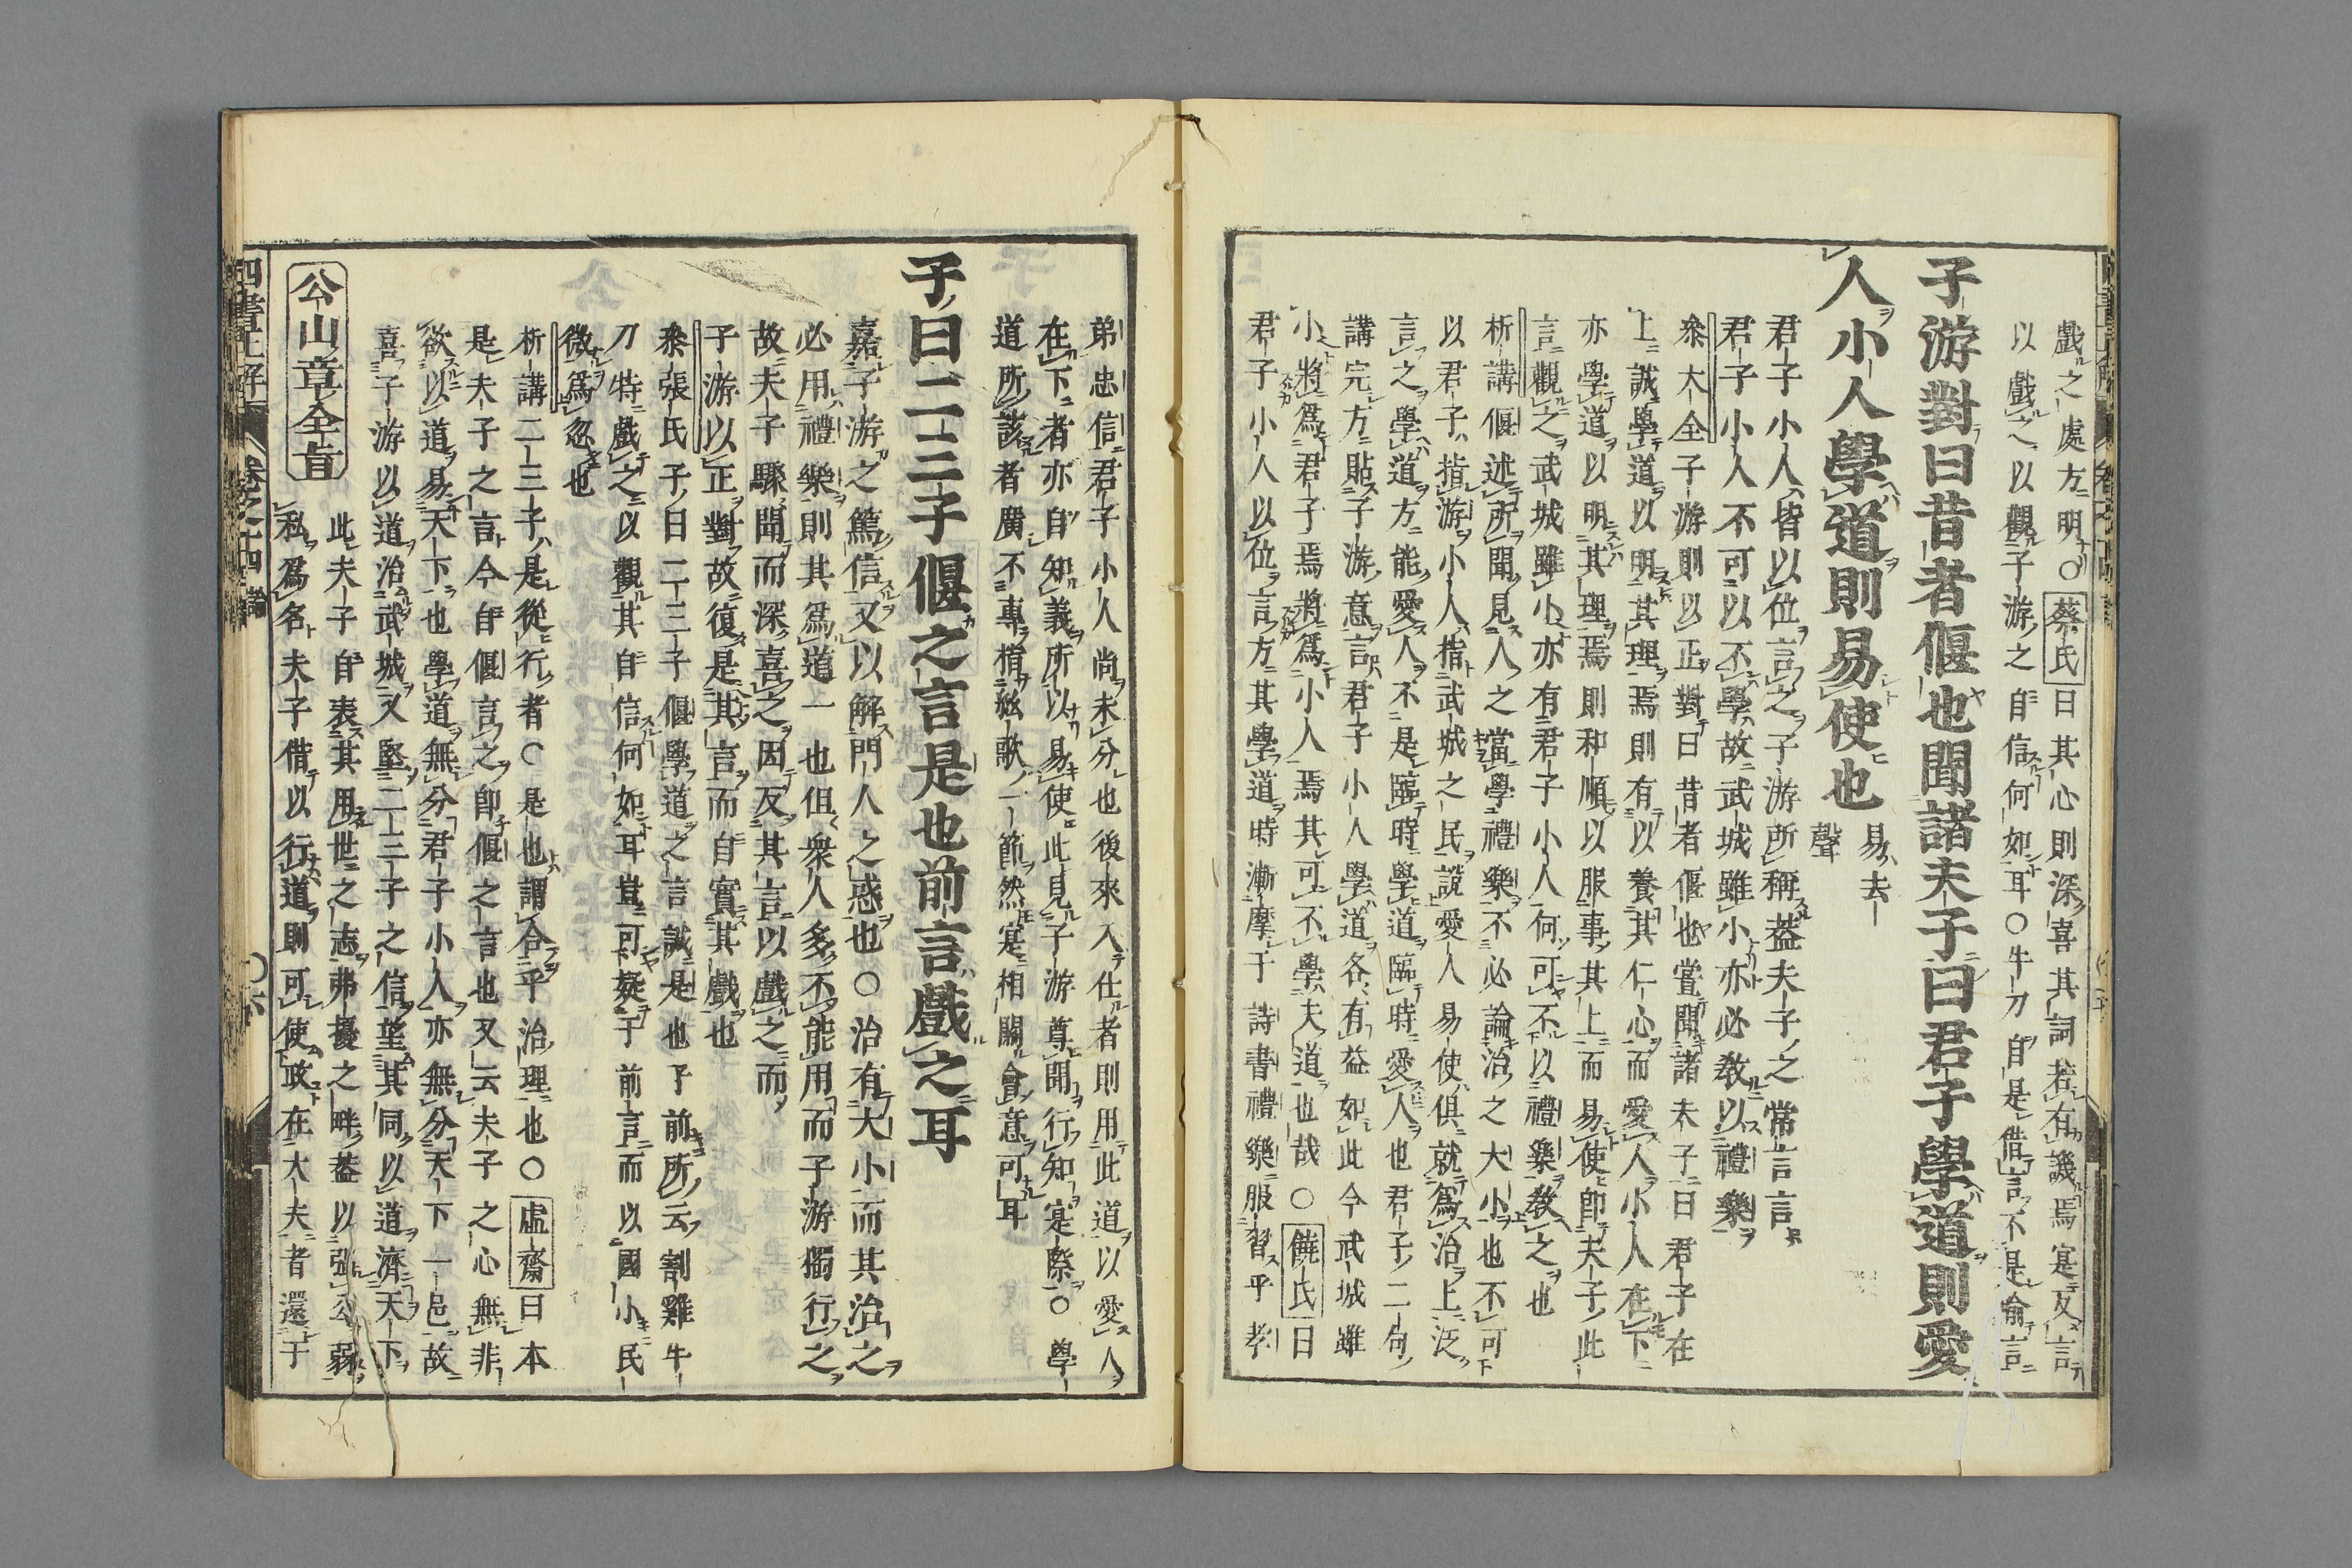 戲之處方明○蔡氏曰其心則深喜其詞若有譏焉寔反言
以戲之以觀子游之自信何如耳○牛刀自是借言不是喻言
子游對曰昔者偃也聞諸夫子曰君子學道則愛
人小人學道則易使也
易去
聲
君子小人皆以位言之子游所稱葢夫子之常言言
君子小人不可以不學故武城雖小亦必敎以禮樂
衆大全子游則以正對曰昔者偃也嘗聞諸夫子曰君子在
上誠學道以明其理焉則有以養其仁心而愛人小人在下
亦學道以明其理焉則和順以服事其上而易使卽夫子此
言觀之武城雖小亦有君子小人何可不以禮樂敎之也
析講偃述所聞見人之當學禮樂不必論治之大小也不可
以君子指游小人指武城之民說愛人易使俱就爲治上泛
言之學道方能愛人不是臨時學道臨時愛人也君子二句
講完方貼子游意言君子小人學道各有益如此今武城雖
小將爲君子焉將爲小人焉其可不學夫道也哉○饒氏曰
君子小人以位言方其學道時漸摩于詩書禮樂服習乎孝
弟忠信君子小人尚未分也後來入仕者則用此道以愛人
在下者亦自知義所以易使此見子游尊聞行知寔際○學
道所該者廣不專指絃歌一節然寔相關會意可耳
子曰二三子偃之言是也前言戲之耳
嘉子游之篤信又以解門人之惑也○治有大小而其治之
必用禮樂則其爲道一也但衆人多不能用而子游獨行之
故夫子驟聞而深喜之因反其言以戲之而
子游以正對故復是其言而自實其戲也
衆張氏子曰二三子偃學道之言誠是也予前所云割雞牛
刀特戲之以觀其自信何如耳豈可疑于前言而以國小民
微爲忽也
析講二三子是從行者○是也謂合乎治理也○虛齋曰本
是夫子之言今自偃言之卽偃之言也又云夫子之心無非
欲以道易天下也學道無分君子小人亦無分天下一邑故
喜子游以道治武城又堅二三子之信望其同以道濟天下
公山章全旨
此夫子自表其用世之志弗擾之畔葢以張公弱
私爲名夫子借以行道則可使政在大夫者還于